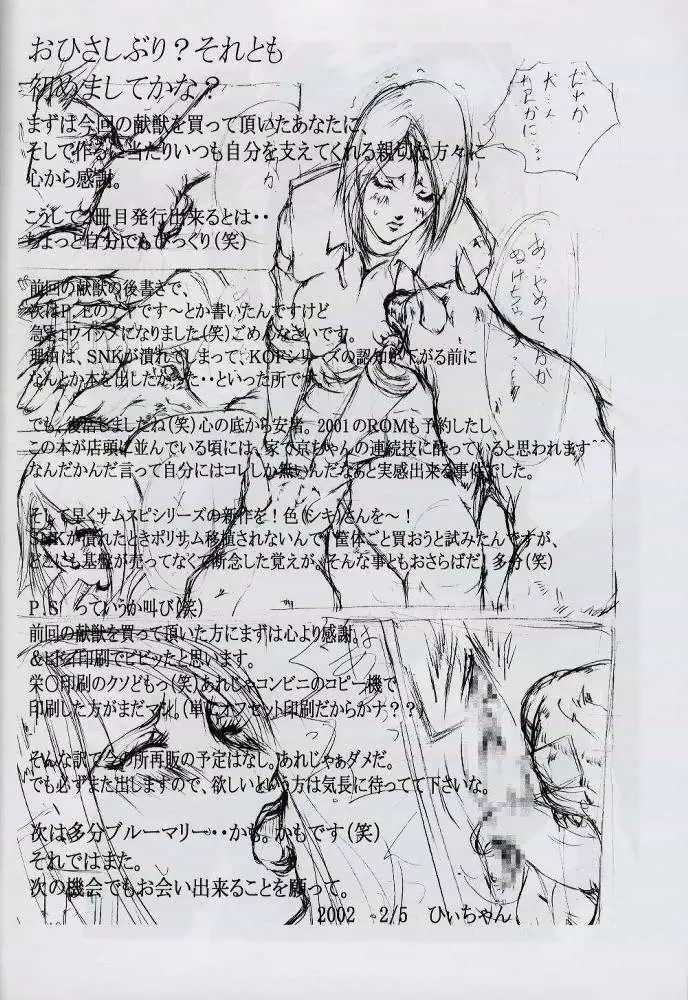 おひさしぶり？それとも
初めましてかな？
まずは今回の献獣を買って頂いたあなたに、
そして作るに当たりいつも自分を支えてくれる親切な方々に
心から感謝。
こうして2冊目発行出来るとは・・
ちょっと自分でもびっくり(笑)
前回の献獣の後書きで、
次はP.Eのアヤです～とか書いたんですけど
急きょウイップになりました(笑)ごめんなさいです。
理由は、SNKが潰れてしまって、KOFシリーズの認知が下がる前に
なんとか本を出したかった・・といった所です。
でも、復活しましたね(笑)心の底から安堵。2001のROMも予約したし、
この本が店頭に並んでいる頃には、家で京ちゃんの連続技に酔っていると思われます^^
なんだかんだ言って自分にはコレしか無いんだなあと実感出来る事件でした。
そして早くサムスピシリーズの新作を！色(シキ)さんを～！
SNKが潰れたときポリサム移植されないんで、筐体ごと買おうと試みたんですが、
どこにも基盤が売ってなくて断念した覚えが。そんな事ともおさらばだ！多分(笑)
P.S　っていうか叫び(笑)
前回の献獣を買って頂いた方にまずは心より感謝。
&ヒドイ印刷でビビッたと思います。
栄〇印刷のクソどもっ(笑)あれじゃコンビニのコピー機で
印刷した方がまだマシ。(単にオフセット印刷だからかナ？？
そんな訳で今の所再販の予定はなし。あれじゃぁダメだ。
でも必ずまた出しますので、欲しいという方は気長に待ってて下さいな。
次は多分ブルーマリー・・かも。かもです(笑)
それではまた。
次の機会でもお会い出来ることを願って。
2002　2/5　ひぃちゃん